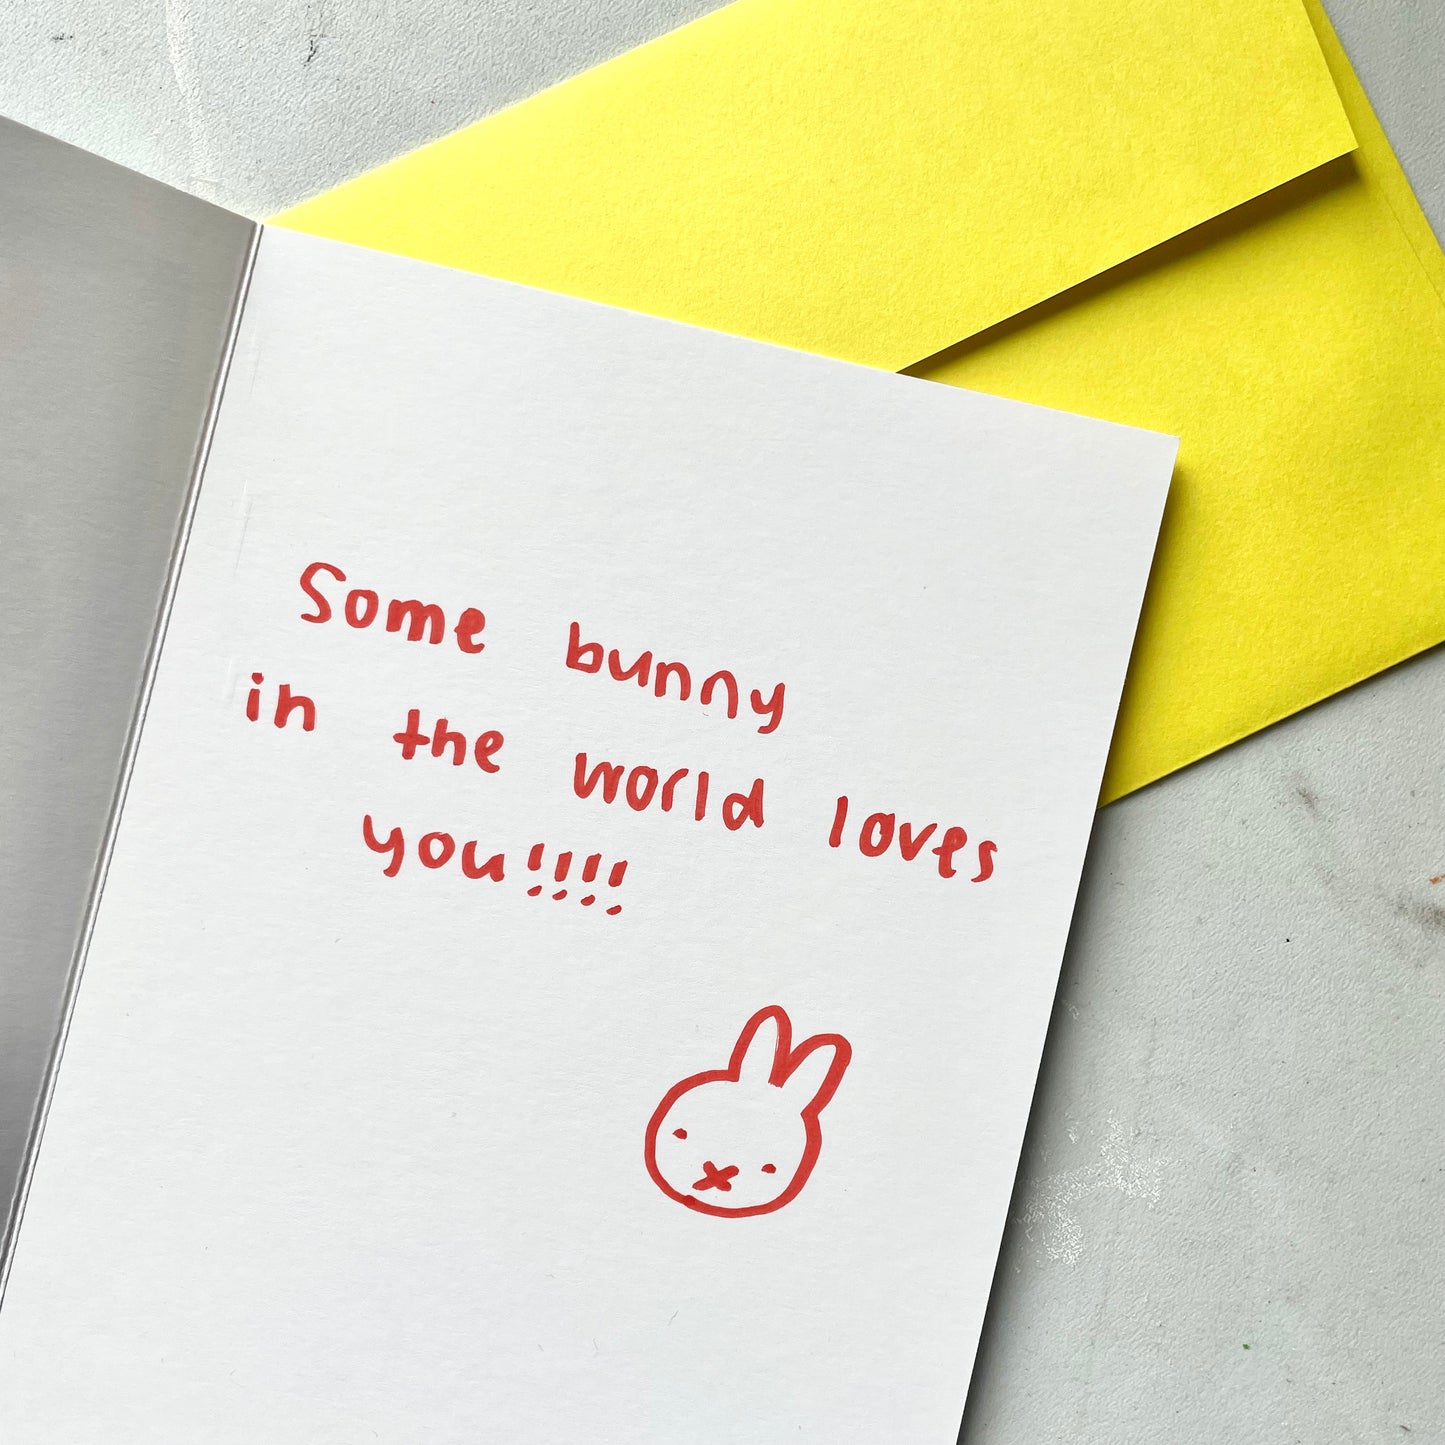 Some bunny
in the world loves
you!!!!